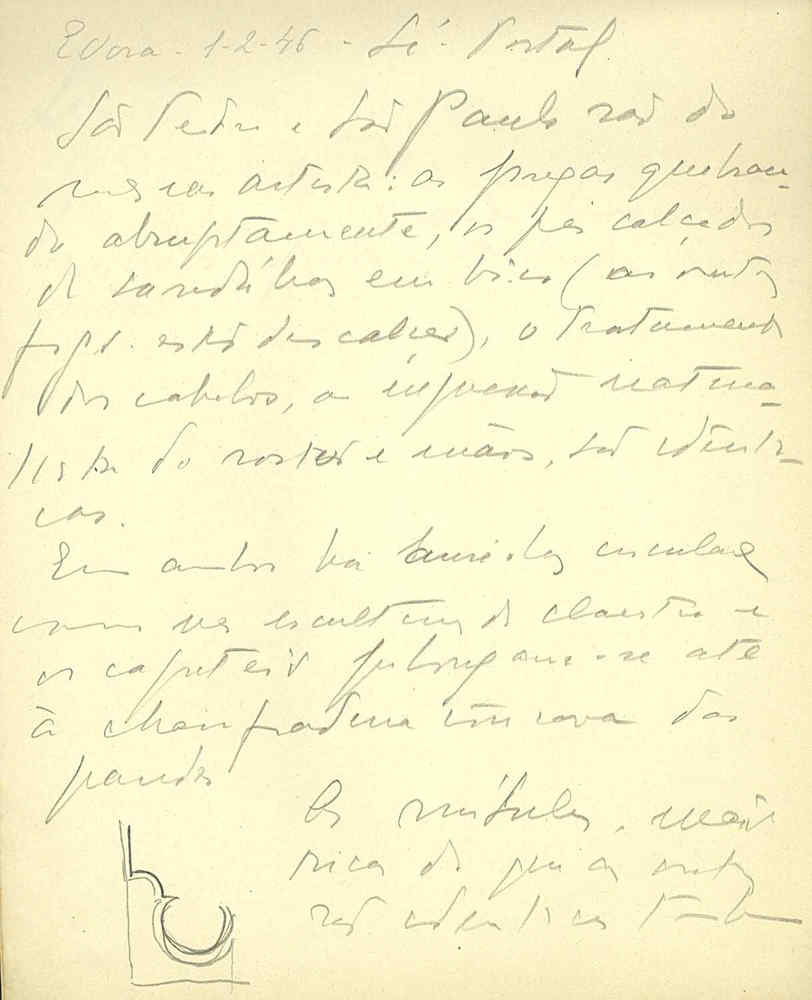 Evora - 1-2-46 - Sé - Portal
São Pedro e São Paulo são do
mesmo artista: as pregas quebran-
do abruptamente, os pés calçados
de sandálias em bico (as outras
figs. estão descalças), o tratamento
dos cabelos, a expressão natura-
lista do rosto e mãos, são identi-
cas.
Em ambos há circular
como nas esculturas do claustro e
os capiteis prolongam-se até
à chanfradura concava das
paredes
As mísulas, mais
ricas do que as outras
são identicas tambem